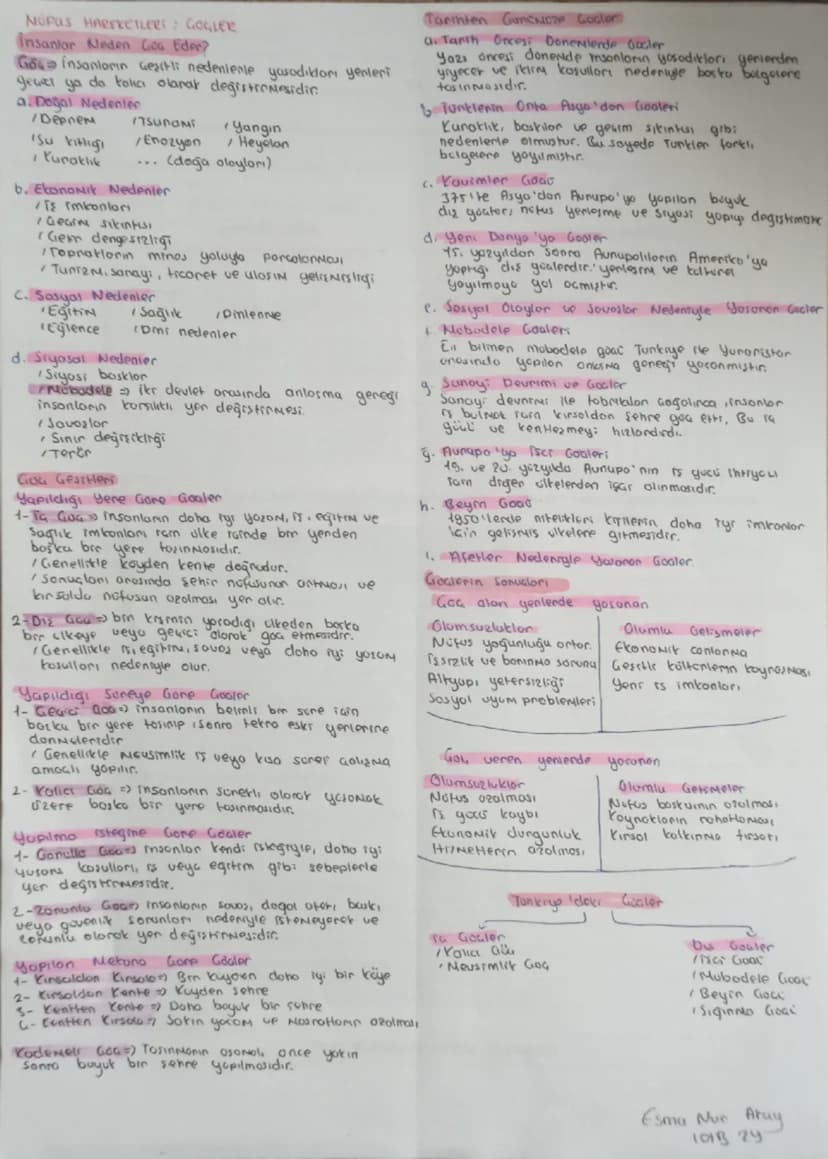 NÜFUS HAREKETLERİ : GÖÇLER
İnsanlar Neden Göç Eder?
Göç => İnsanların çeşitli nedenlerle yaşadıkları yerleri
geçici ya da kalıcı olarak değiştirmesidir.
a. Doğal Nedenler
/ Deprem / Tsunami / Yangın
/ Su kıtlığı / Erozyon / Heyelan
/ Kuraklık ... (doğa olayları)
b. Ekonomik Nedenler
/ İş imkanları
/ Geçim sıkıntısı
/ Gelir dengesizliği
/ Toprakların miras yoluyla parçalanması
/ Turizm, sanayi, ticaret ve ulaşım gelişmişliği
c. Sosyal Nedenler
/ Eğitim / Sağlık / Dinlenme
/ Eğlence / Dini nedenler
d. Siyasal Nedenler
/ Siyasi baskılar
/ Mübadele => iki devlet arasında anlaşma gereği
insanların karşılıklı yer değiştirmesi.
/ Savaşlar
/ Sınır değişikliği
/ Terör
Göç Çeşitleri
Yapıldığı Yere Göre Göçler
1- İç Göç => insanların daha iyi yaşam, iş, eğitim ve
sağlık imkanları için ülke içinde bir yerden
başka bir yere taşınmasıdır.
/ Genellikle köyden kente doğrudur.
/ Sonuçları arasında şehir nüfusunun artması ve
kırsalda nüfusun azalması yer alır.
2- Dış Göç => bir kişinin yaşadığı ülkeden başka
bir ülkeye veya geçici olarak göç etmesidir.
/ Genellikle iş, eğitim, savaş veya daha iyi yaşam
koşulları nedeniyle olur.
Yapıldığı Süreye Göre Göçler
1- Geçici Göç => insanların belirli bir süre için
başka bir yere taşınıp, sonra tekrar eski yerlerine
dönmeleridir
/ Genellikle mevsimlik iş veya kısa süreli çalışma
amaçlı yapılır.
2- Kalıcı Göç => insanların sürekli olarak yaşamak
üzere başka bir yere taşınmasıdır.
Yapılma İsteğine Göre Göçler
1- Gönüllü Göç => insanlar kendi isteğiyle, daha iyi
yaşam koşulları, iş veya eğitim gibi sebeplerle
yer değiştirmesidir.
2- Zorunlu Göç => insanların savaş, doğal afet, baskı
veya güvenlik sorunları nedeniyle istemeyerek ve
zorunlu olarak yer değiştirmesidir.
Yapılan Mekana Göre Göçler
1- Kırsaldan Kırsala => Bir köyden daha iyi bir köye
2- Kırsaldan Kente => Köyden şehre
3- Kentten Kente => Daha büyük bir şehre
4- Kentten Kırsala => Sakin yaşam ve masrafların azalması
Kademeli Göç => Taşınmanın aşamalı, önce yakın
sonra büyük bir şehre yapılmasıdır.
Tarihten Günümüze Göçler
a. Tarih Öncesi Dönemlerde Göçler
Yazı öncesi dönemde insanların yaşadıkları yerlerden
yiyecek ve iklim koşulları nedeniyle başka bölgelere
taşınmasıdır.
b. Türklerin Orta Asya'dan Göçleri
Kuraklık, baskılar ve geçim sıkıntısı gibi
nedenlerle olmuştur. Bu sayede Türkler farklı
bölgelere yayılmıştır.
c. Kavimler Göçü
375'te Asya'dan Avrupa'ya yapılan büyük
dış göçler, nüfus yerleşme ve siyasi yapıyı değiştirmiştir
d. Yeni Dünya'ya Göçler
15. yüzyıldan sonra Avrupalıların Amerika'ya
yaptığı dış göçlerdir. yerleşim ve kültürel
yayılmaya yol açmıştır.
e. Sosyal Olaylar ve Savaşlar Nedeniyle Yaşanan Göçler
f. Mübadele Göçleri
En bilinen mübadele göçü Türkiye ile Yunanistan
arasında yapılan anlaşma gereği yaşanmıştır.
g. Sanayi Devrimi ve Göçler
Sanayi devrimi ile fabrikalar çoğalınca, insanlar
iş bulmak için kırsaldan şehre göç etti, Bu iç
göçü ve kentleşmeyi hızlandırdı.
ğ. Avrupa'ya İşçi Göçleri
19. ve 20. yüzyılda Avrupa'nın iş gücü ihtiyacı
için diğer ülkelerden işçi alınmasıdır.
h. Beyin Göçü
1950'lerde nitelikli kişilerin daha iyi imkanlar
için gelişmiş ülkelere gitmesidir.
ı. Afetler Nedeniyle Yaşanan Göçler
Göçlerin Sonuçları
Göç alan yerlerde yaşanan
Olumsuzluklar Olumlu Gelişmeler
Nüfus yoğunluğu artar. Ekonomik canlanma
İşsizlik ve barınma sorunu Çeşitli kültürlerin kaynaşması
Altyapı yetersizliği Yeni iş imkanları
Sosyal uyum problemleri
Göç veren yerlerde yaşanan
Olumsuzluklar Olumlu Gelişmeler
Nüfus azalması Nüfus baskısının azalması
İş gücü kaybı Kaynakların rahatlaması
Ekonomik durgunluk Kırsal kalkınma fırsatı
Hizmetlerin azalması
Türkiye'deki Göçler
İç Göçler Dış Göçler
/ Kalıcı Göç / İşçi Göçü
/ Mevsimlik Göç / Mübadele Göçü
/ Beyin Göçü
/ Sığınma Göçü
Esma Nur Atay
10/B 24